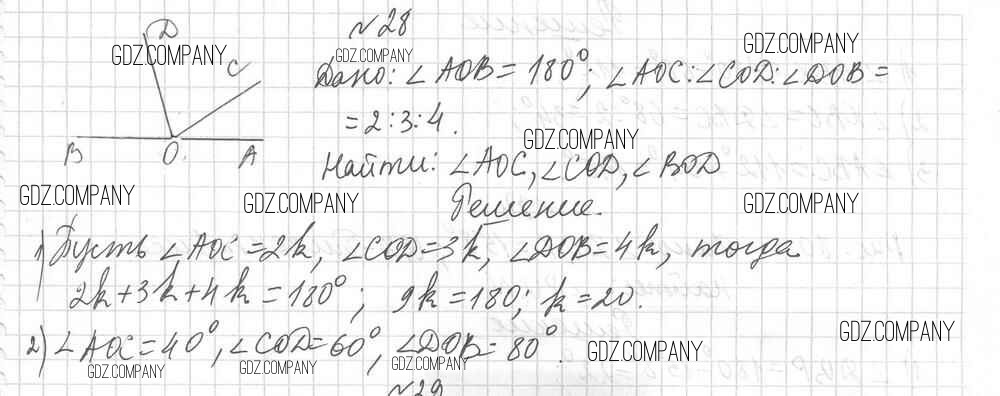 №28
D
C
B O A
Дано: ∠AOB = 180°; ∠AOC:∠COD:∠DOB =
= 2:3:4.
Найти: ∠AOC, ∠COD, ∠BOD
Решение.
1) Пусть ∠AOC = 2k, ∠COD = 3k, ∠DOB = 4k, тогда
2k+3k+4k = 180°; 9k = 180; k = 20.
2) ∠AOC = 40°, ∠COD = 60°, ∠DOB = 80°.
№29
GDZ.COMPANY
GDZ.COMPANY
GDZ.COMPANY
GDZ.COMPANY
GDZ.COMPANY
GDZ.COMPANY
GDZ.COMPANY
GDZ.COMPANY
GDZ.COMPANY
GDZ.COMPANY
GDZ.COMPANY
GDZ.COMPANY